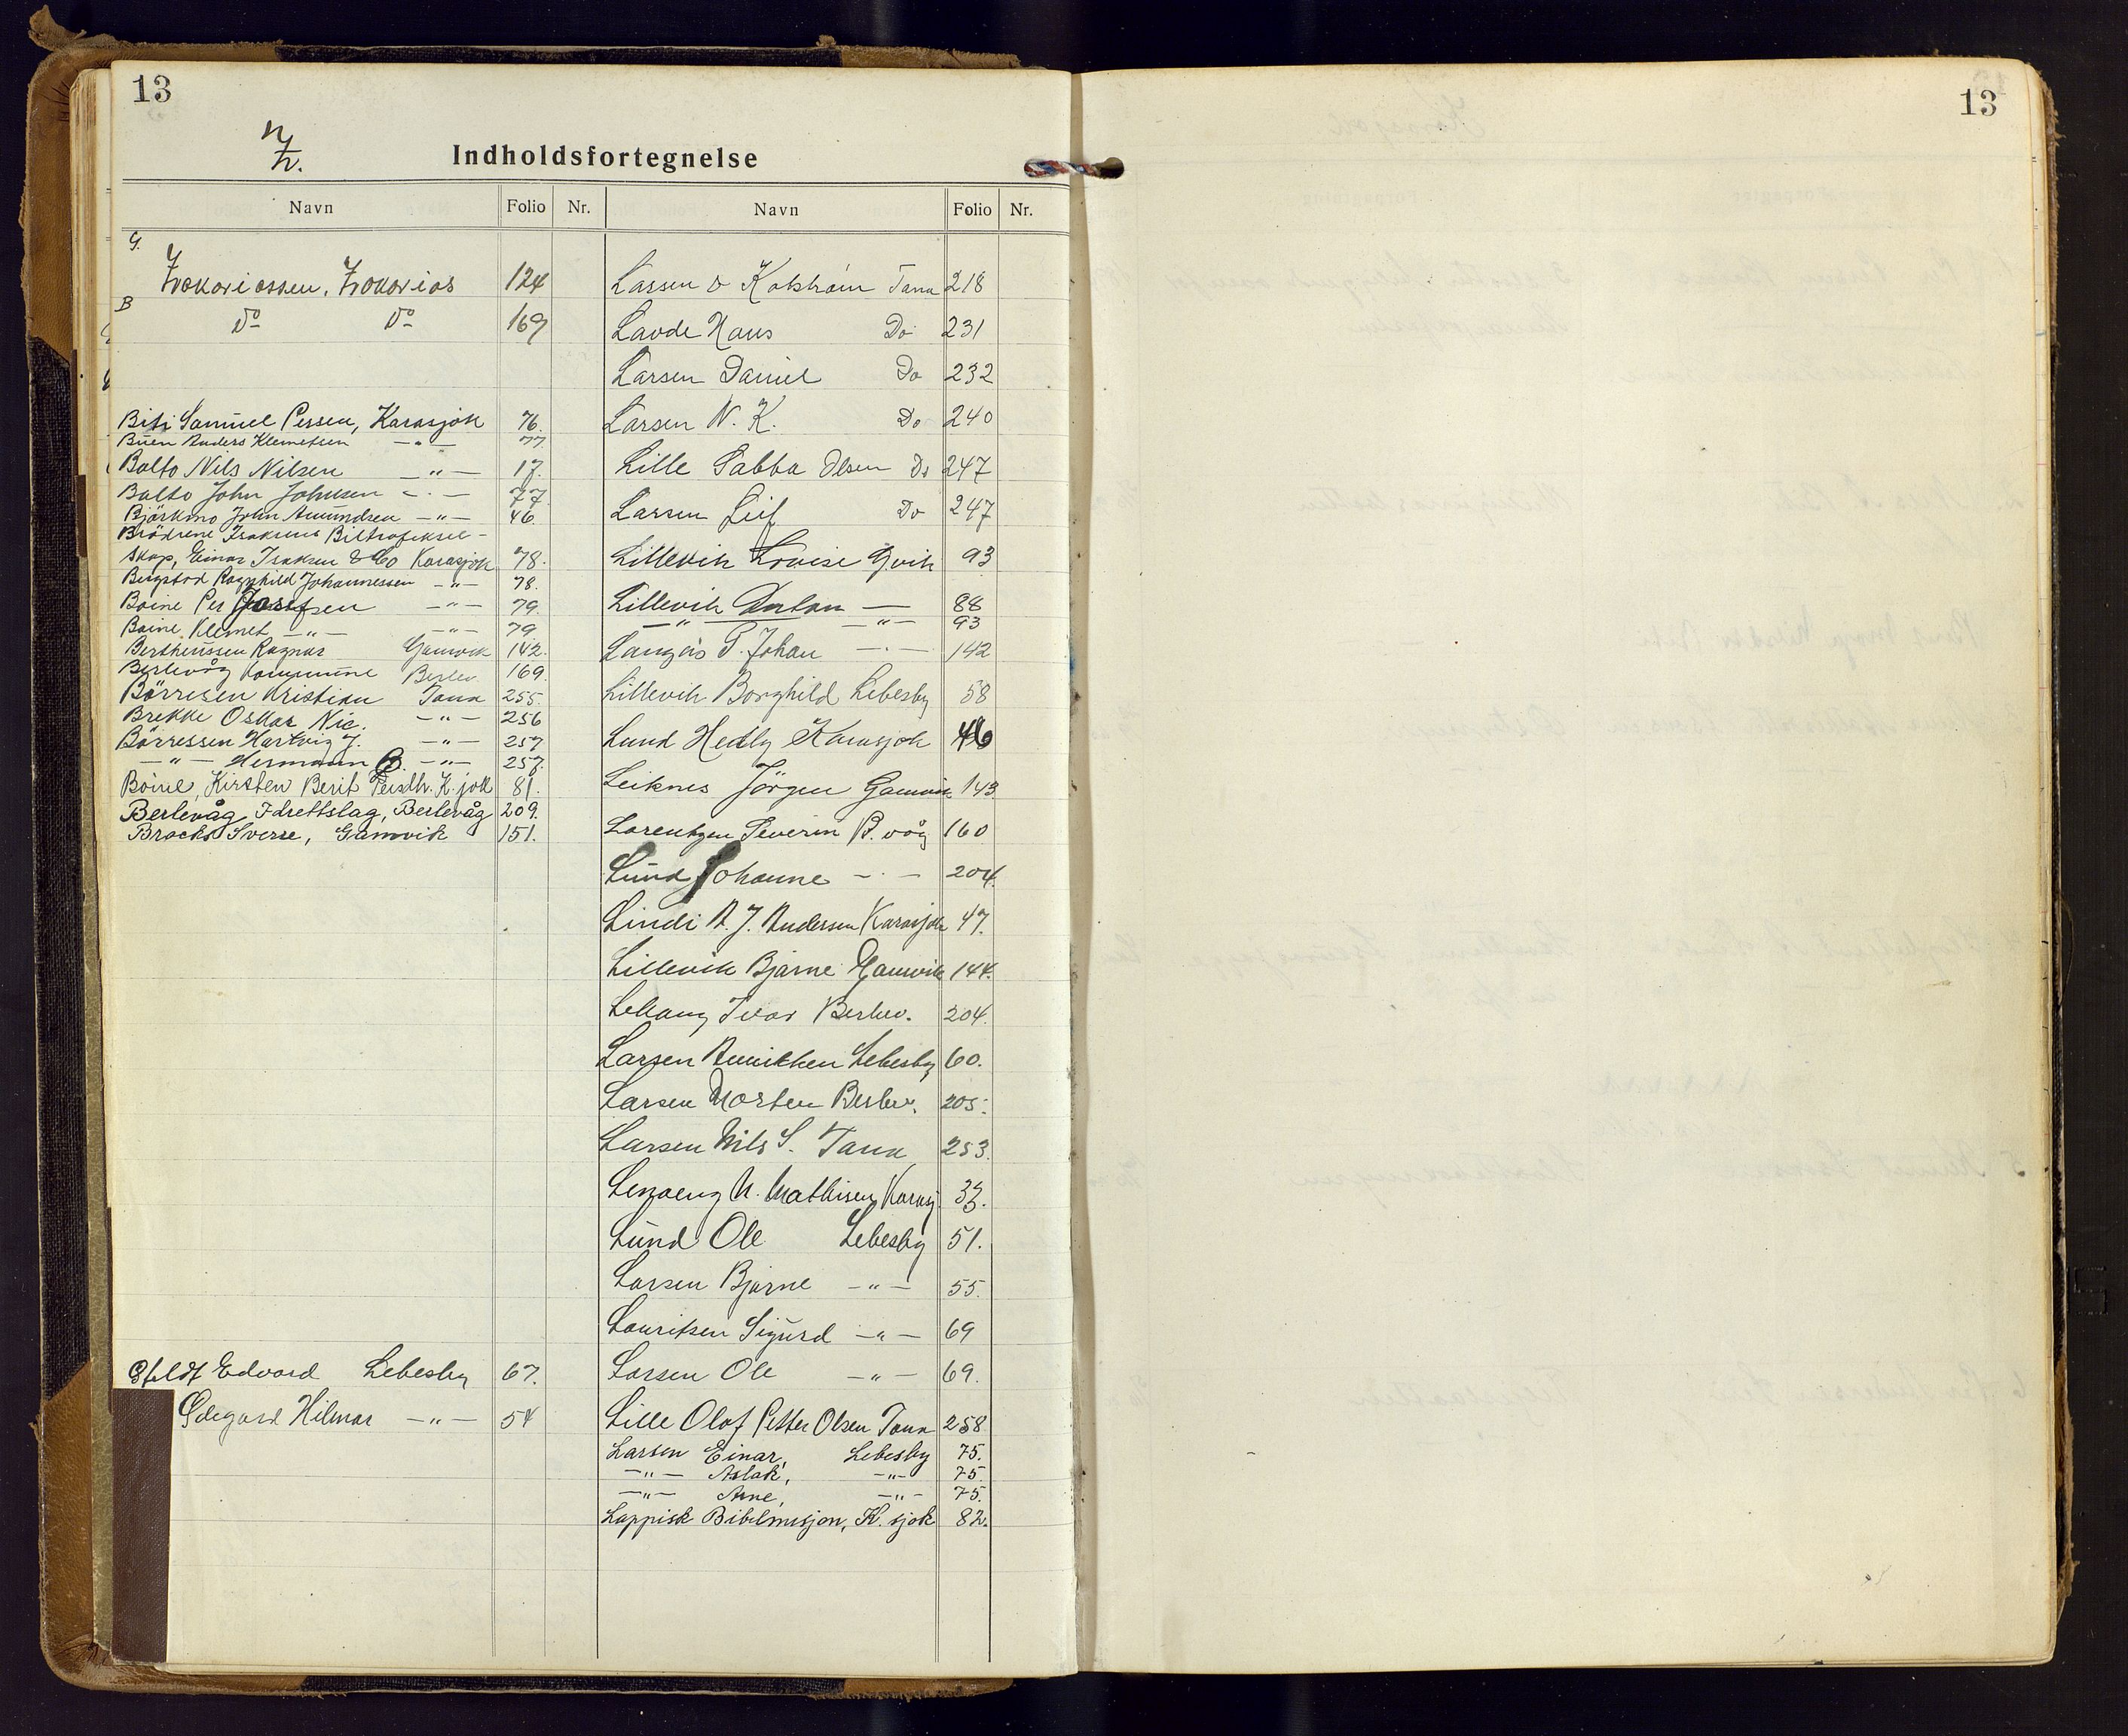 13
Indholdsfortegnelse
Navn Folio Nr.
Zakariassen, Zakarias 124
B
Do Do 169
Biti Samuel Persen, Karasjok 76.
Buen Anders Klemetsen — " — 77.
Balto Nils Nilsen — " — 17.
Balto John Johnsen — " — 77.
Björkmo John Amundsen — " — 46.
Brödrene Isaksens
skap, Einar Isaksen & Co Karasjok 78.
Bergstad Ragnhild Johannessen — " — 78.
Boine Per Josefsen — " — 79.
Boine Klemet — " — — " — 79
Bertheussen Ragnar Gamvik 142.
Berlevåg Kommune Berlev. 169.
Börresen Kristian Tana 255.
Brekke Oskar Nic. — " — 256
Börressen Hartvig J. — " — 257
— " — Hermann — " — 257.
Boine, Kirsten Berit Persdtr. K.jok 81.
Berlevåg Idrettslag, Berlevåg 209.
Brocks Sverre, Gamvik 151.
Edvard Lebesby 67.
Ödegard Hilmar — " — 54
Navn Folio Nr.
Larsen & Kolström Tana 218
Lavde Hans Do 231
Larsen Daniel Do 232
Larsen N. K. Do 240
Lille Sabba Olsen Do 247
Larsen Leif Do 247
Lillevik Lovise Gvik 93
Lillevik Anton — 88
— " — — " — 93
Langås P. Johan — " — 142
Lillevik Borghild Lebesby 58
Lund Hedly Karasjok 46
Leiknes Jörgen Gamvik 143
Lorentzen Severin B.våg 160
Lund Johanne — " — 204.
Lindi A. J. Andersen Karasjok 47.
Lillevik Bjarne Gamvik 144.
Ivar Berlev. 204.
Larsen Annikken Lebesby 60.
Larsen Morten Berlev. 205.
Larsen Nils S. Tana 253.
N. Mathisen Karasj.
Lund Ole Lebesby 51.
Larsen Bjarne — " — 55.
Lauritsen Sigurd — " — 69
Larsen Ole — " — 69.
Lille Olaf Petter Olsen Tana 258
Larsen Einar, Lebesby 75.
— " — Aslak, — " — 75.
— " — Arne, — " — 75.
Lappisk Bibelmisjon, K.sjok 82.
13